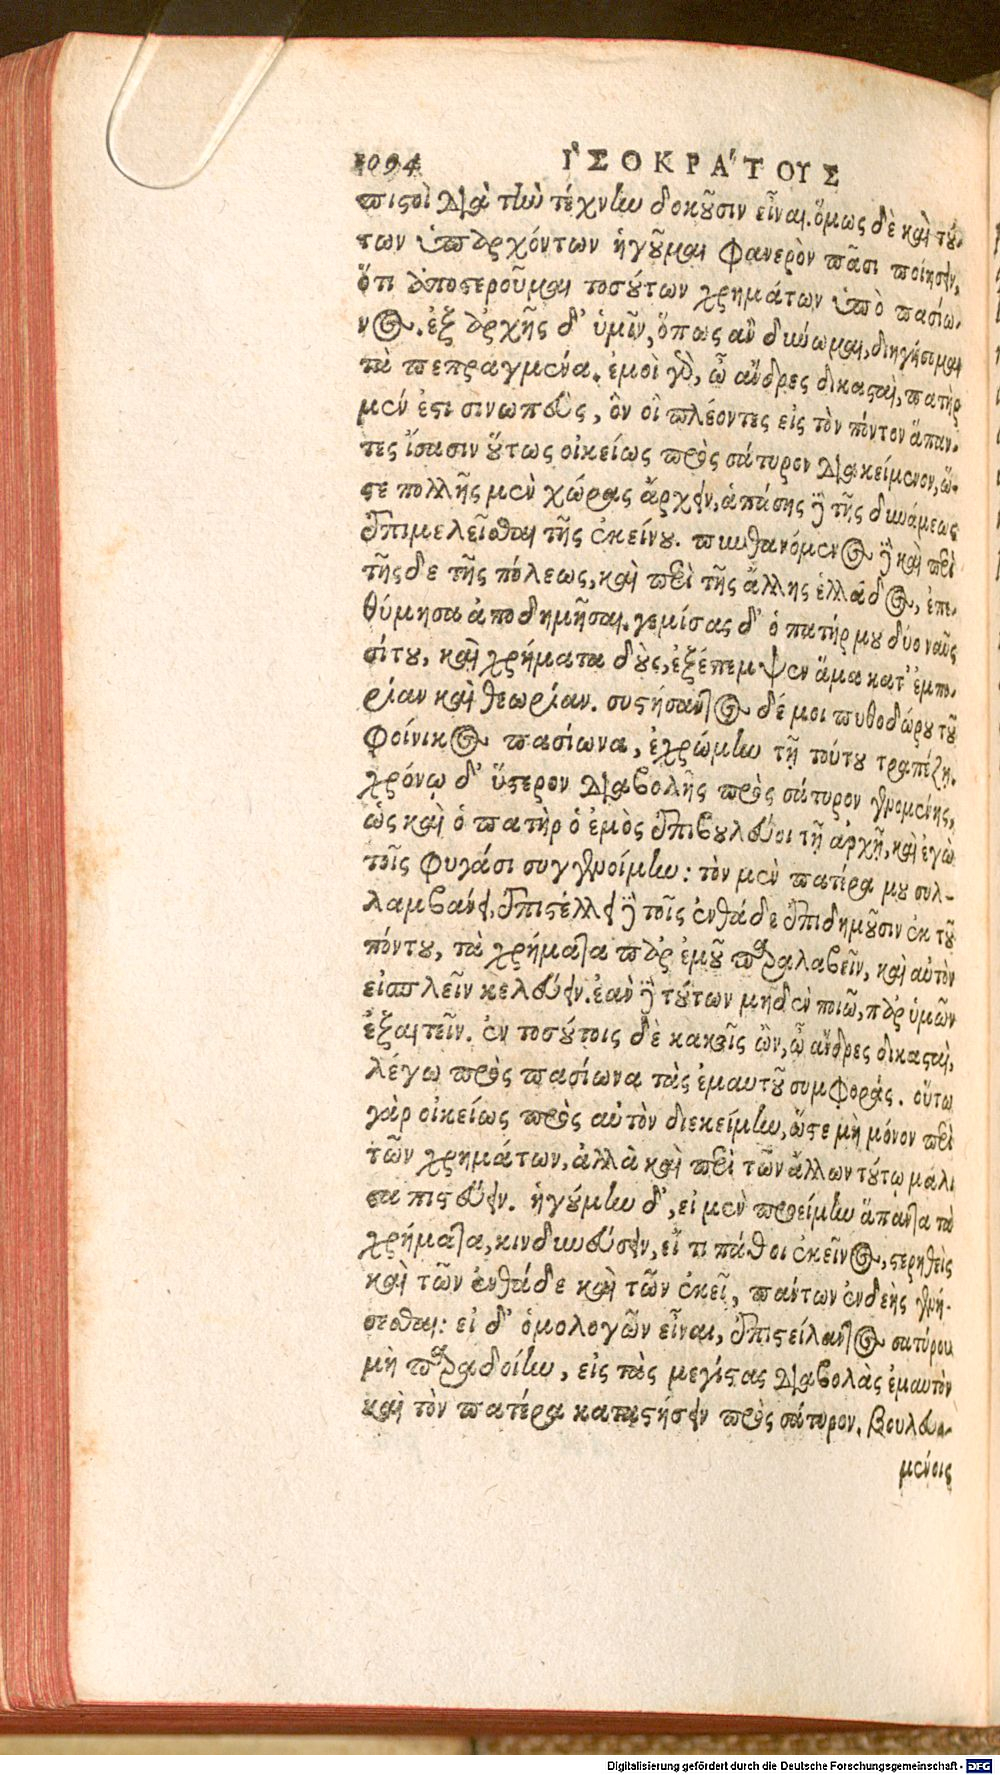 1094 ἸΣΟΚΡΆΤΟΥΣ
πιστοὶ διὰ τὴν τέχνην δοκοῦσιν εἶναι. ὅμως δὲ καὶ τού-
των ὑπαρχόντων ἡγοῦμαι φανερὸν πᾶσι ποιήσειν,
ὅτι ἀποστεροῦμαι τοσούτων χρημάτων ὑπὸ πασίω-
νος. ἐξ ἀρχῆς δ' ὑμῖν, ὅπως ἂν δύνωμαι, διηγήσομαι
τὰ πεπραγμένα. ἐμοὶ γὰρ, ὦ ἄνδρες δικασταὶ, πατὴρ
μέν ἐστι σινωπεὺς, ὃν οἱ πλέοντες εἰς τὸν πόντον ἅπαν-
τες ἴσασιν οὕτως οἰκείως πρὸς σάτυρον διακείμενον, ὥ-
στε πολλῆς μὲν χώρας ἄρχειν, ἁπάσης δὲ τῆς δυνάμεως
ἐπιμελεῖσθαι τῆς ἐκείνου. πυνθανόμενος δὲ καὶ περὶ
τῆςδε τῆς πόλεως, καὶ περὶ τῆς ἄλλης ἑλλάδος, ἐπε-
θύμησα ἀποδημῆσαι. γεμίσας δ' ὁ πατήρ μου δύο ναῦς
σίτου, καὶ χρήματα δοὺς, ἐξέπεμψεν ἅμα κατ' ἐμπο-
ρίαν καὶ θεωρίαν. συστήσαντος δέ μοι πυθοδώρου τοῦ
φοίνικος πασίωνα, ἐχρώμην τῇ τούτου τραπέζῃ.
χρόνῳ δ' ὕστερον διαβολῆς πρὸς σάτυρον γενομένης,
ὡς καὶ ὁ πατὴρ ὁ ἐμὸς ἐπιβουλεύοι τῇ ἀρχῇ, καὶ ἐγὼ
τοῖς φυγάσι συγγενοίμην: τὸν μὲν πατέρα μου συλ-
λαμβάνει, ἐπιστέλλει δὲ τοῖς ἐνθάδε ἐπιδημοῦσιν ἐκ τοῦ
πόντου, τὰ χρήματα παρ' ἐμοῦ παραλαβεῖν, καὶ αὐτὸν
εἰσπλεῖν κελεύειν. ἐὰν δὲ τούτων μηδὲν ποιῶ, παρ' ὑμῶν
ἐξαιτεῖν. ἐν τοσούτοις δὲ κακοῖς ὢν, ὦ ἄνδρες δικασταὶ,
λέγω πρὸς πασίωνα τὰς ἐμαυτοῦ συμφοράς. οὕτω
γὰρ οἰκείως πρὸς αὐτὸν διεκείμην, ὥστε μὴ μόνον περὶ
τῶν χρημάτων, ἀλλὰ καὶ περὶ τῶν ἄλλων τούτῳ μάλι
στα πιστεύειν. ἡγούμην δ', εἰ μὲν προείμην ἅπαντα τὰ
χρήματα, κινδυνεύσειν, εἴ τι πάθοι ἐκεῖνος, στερηθεὶς
καὶ τῶν ἐνθάδε καὶ τῶν ἐκεῖ, πάντων ἐνδεὴς γενή-
σεσθαι: εἰ δ' ὁμολογῶν εἶναι, ἐπιστείλαντος σατύρου
μὴ παραδοίην, εἰς τὰς μεγίστας διαβολὰς ἐμαυτὸν
καὶ τὸν πατέρα καταστήσειν πρὸς σάτυρον. βουλευο-
μένοις
Digitalisierung gefördert durch die Deutsche Forschungsgemeinschaft - DFG